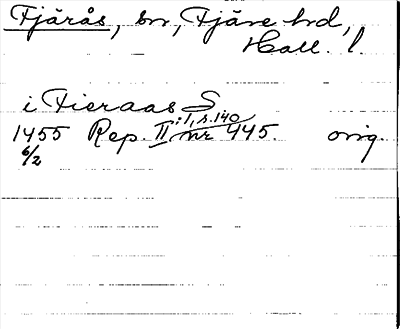 Fjärås, sn, Fjäre hd,
Hall. l.
i Fieraas S.
1455 Rep. II:1, s. 140 nr 445. orig.
6/2